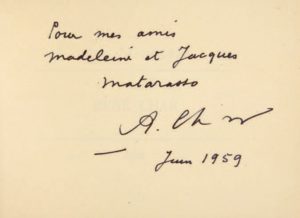 Pour mes amis
Madeleine et Jacques
Matarasso
A. Ch
Juin 1959